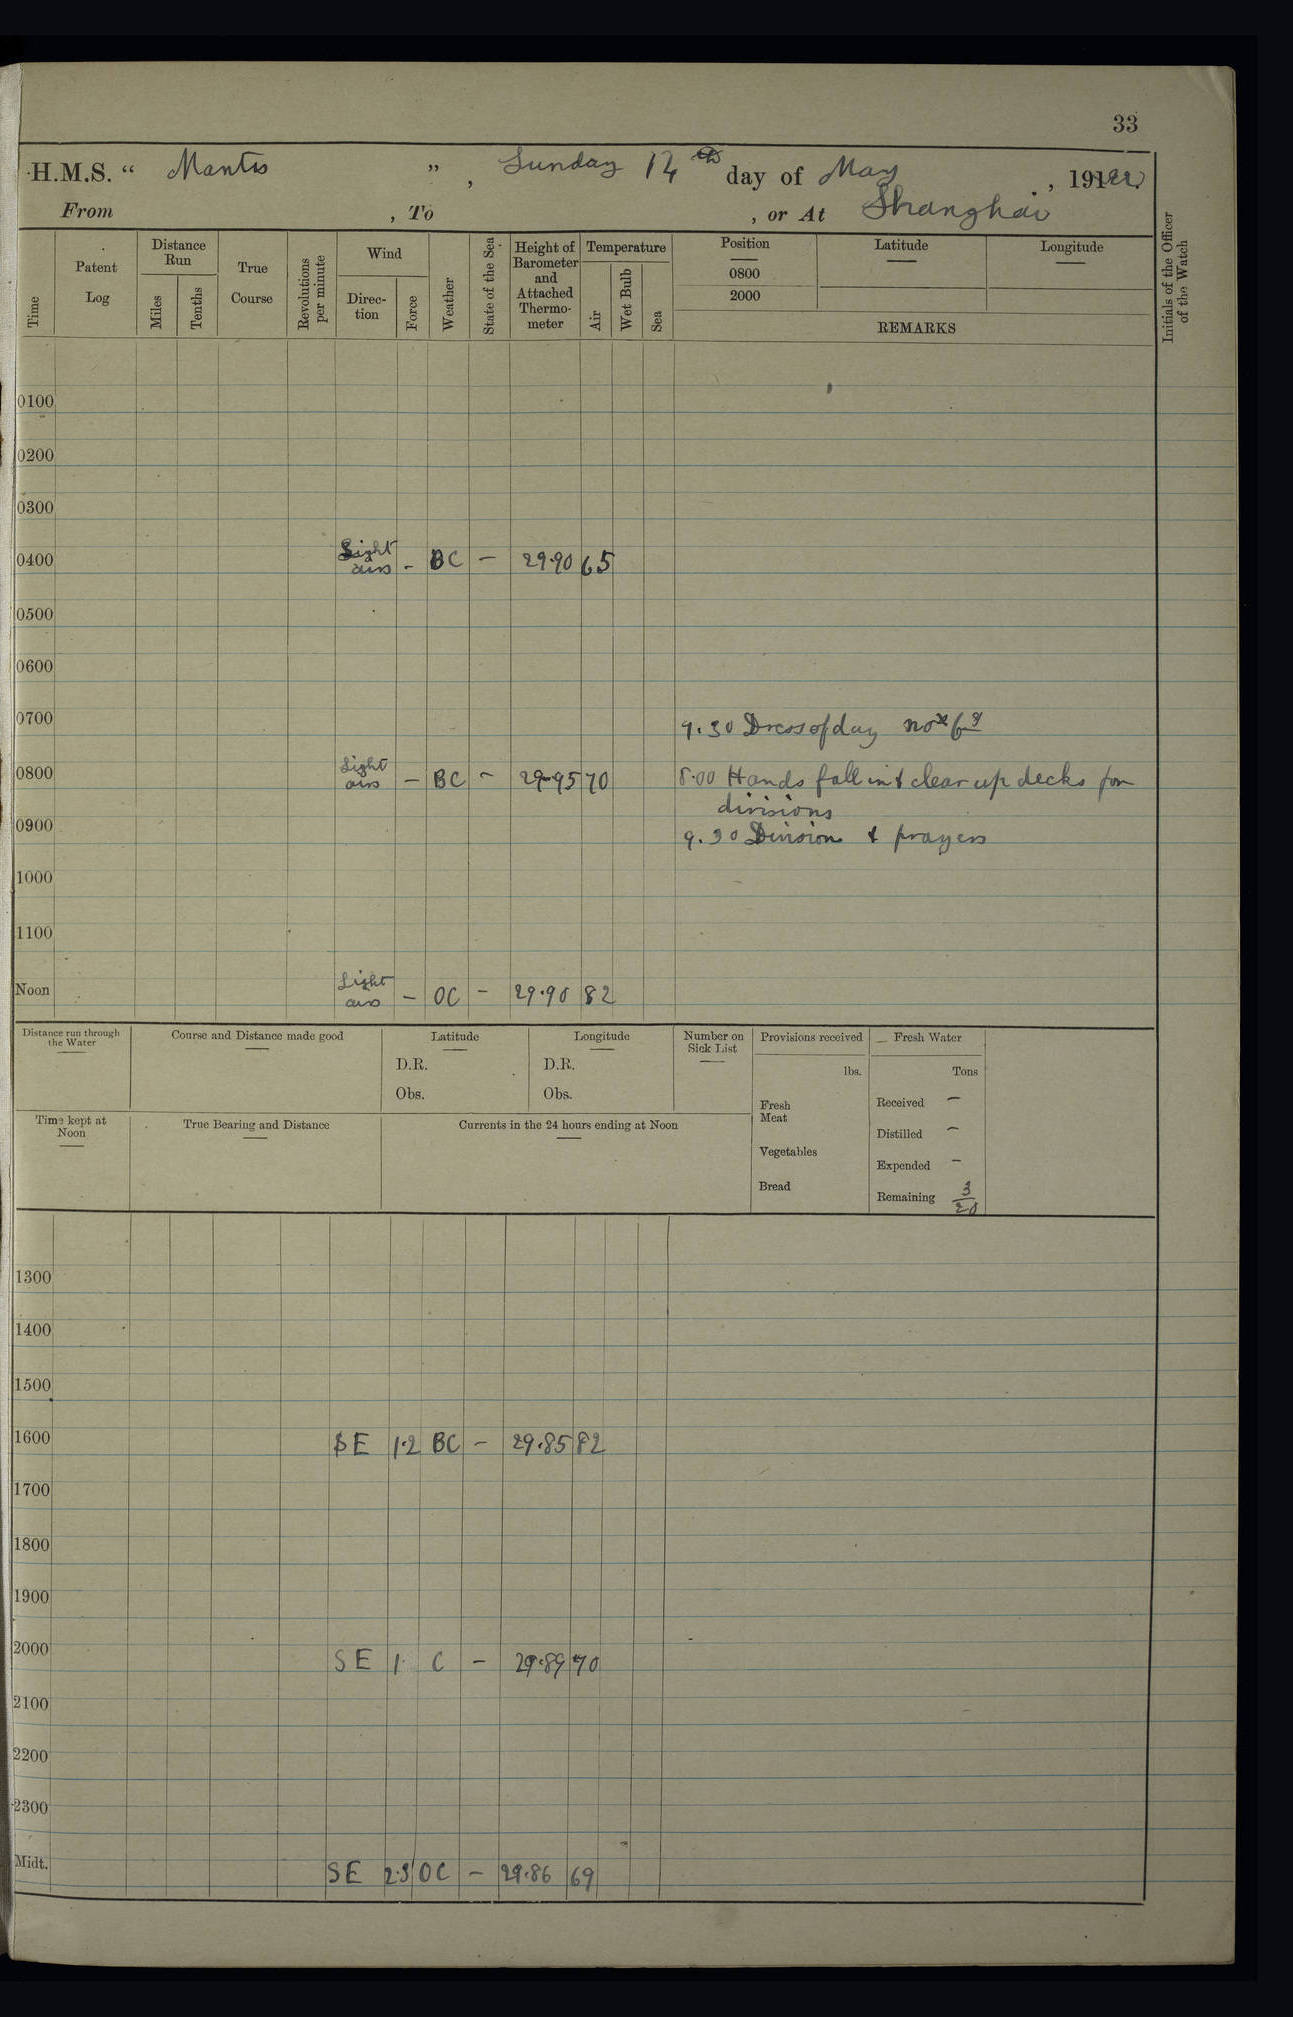 33
H.M.S. “ Mantis ” , Sunday 14th day of May , 1922
From , To , or At Shanghai
Time
Patent Log
Distance Run
Miles
Tenths
True Course
Revolutions per minute
Wind
Direc-tion
Force
Weather
State of the Sea
Height of Barometer and Attached Thermo-meter
Temperature
Air
Wet Bulb
Sea
Position Latitude Longitude
0800
2000
REMARKS
Initials of the Officer of the Watch
0100
0200
0300
0400 Light airs - BC - 29.90 65
0500
0600
0700
9.30 Dress of day No
0800 Light airs - BC - 29.95 70
8.00 Hands fall in & clear up decks for
divisions
0900
9.30 Division & prayers
1000
1100
Noon Light airs - OC - 29.90 82
Distance run through the Water
Course and Distance made good
Latitude
D.R.
Obs.
Longitude
D.R.
Obs.
Number on Sick List
Provisions received
lbs.
Fresh Meat
Vegetables
Bread
Fresh Water
Tons
Received -
Distilled -
Expended -
Remaining 3/20
Time kept at Noon
True Bearing and Distance
Currents in the 24 hours ending at Noon
1300
1400
1500
1600 SE 1.2 BC - 29.85 82
1700
1800
1900
2000 SE 1. C - 29.89 70
2100
2200
2300
Midt. SE 2.3 OC - 29.86 69